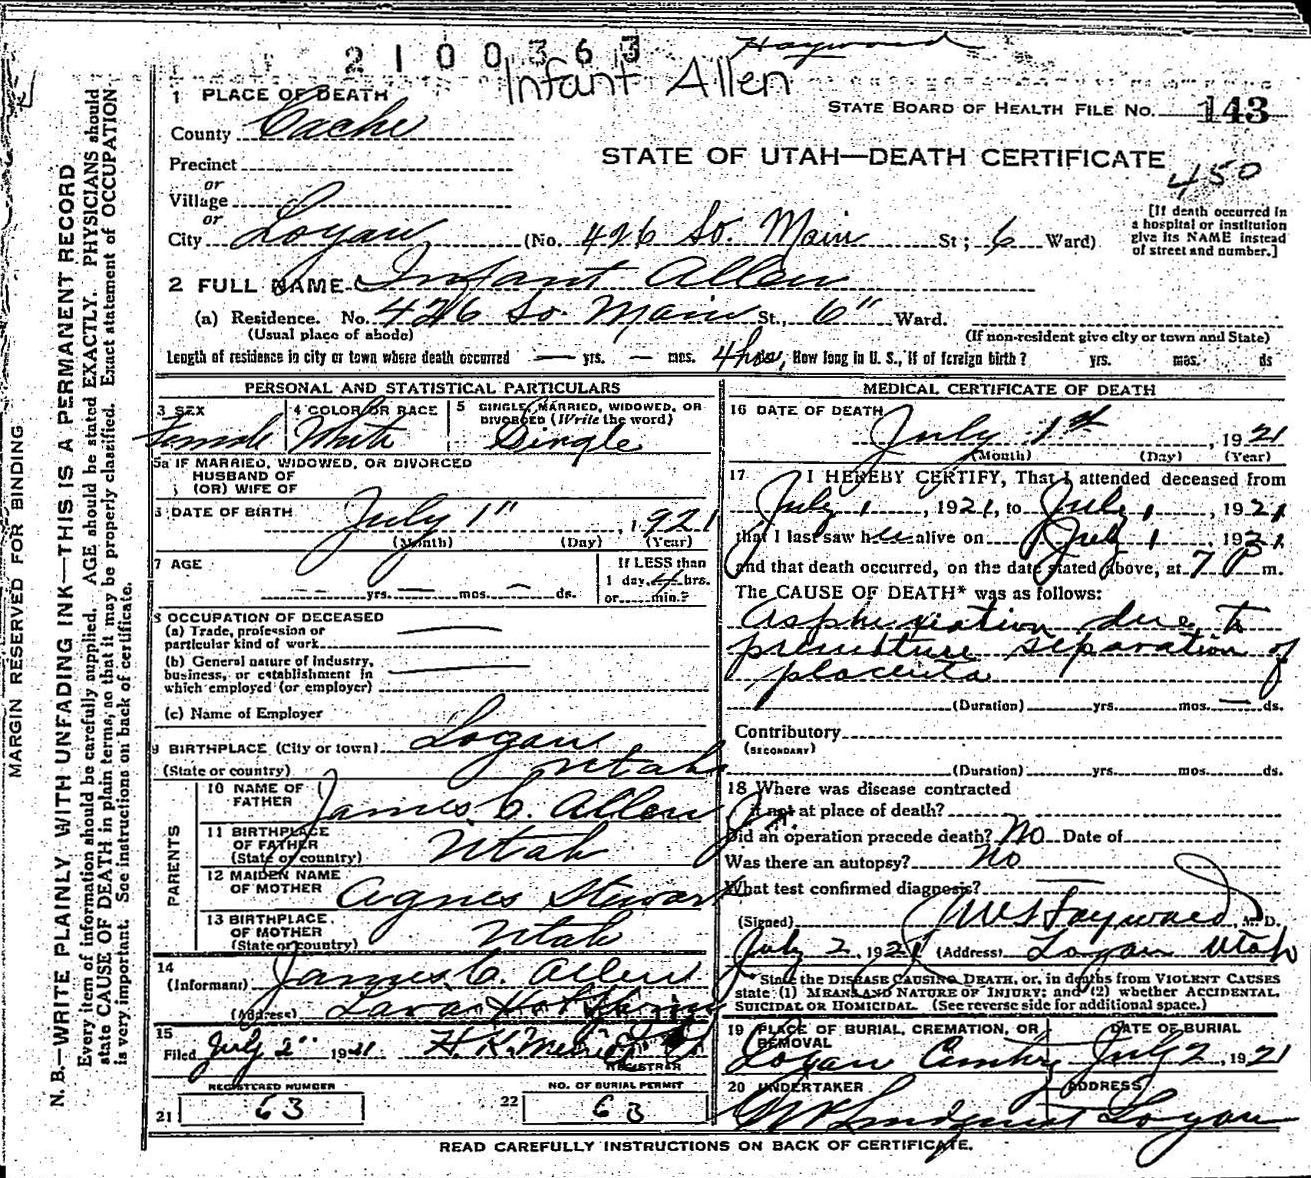 2100363
Haywood
Infant Allen
1 PLACE OF DEATH
STATE BOARD OF HEALTH FILE No. 143
County Cache
STATE OF UTAH—DEATH CERTIFICATE
450
Precinct
or
Village
or
City Logan (No. 426 So. Main St; 6 Ward)
[If death occurred in
a hospital or institution
give its NAME instead
of street and number.]
2 FULL NAME Infant Allen
(a) Residence. No. 426 So. Main St., 6" Ward.
(Usual place of abode)
(If non-resident give city or town and State)
Length of residence in city or town where death occurred — yrs. — mos. 4 hrs, How long in U. S., if of foreign birth? yrs. mos. ds
PERSONAL AND STATISTICAL PARTICULARS
3 SEX
Female
4 COLOR OR RACE
White
5 SINGLE, MARRIED, WIDOWED, OR
DIVORCED (Write the word)
Single
5a IF MARRIED, WIDOWED, OR DIVORCED
HUSBAND OF
(OR) WIFE OF
6 DATE OF BIRTH
July 1" , 1921
(Month) (Day) (Year)
7 AGE
— yrs. — mos. — ds.
If LESS than
1 day, 4 hrs.
or min.?
8 OCCUPATION OF DECEASED
(a) Trade, profession or
particular kind of work
(b) General nature of industry,
business, or establishment in
which employed (or employer)
(c) Name of Employer
9 BIRTHPLACE (City or town) Logan
(State or country) Utah
PARENTS
10 NAME OF
FATHER James C. Allen Jr.
11 BIRTHPLACE
OF FATHER
(State or country) Utah
12 MAIDEN NAME
OF MOTHER Agnes Stewart
13 BIRTHPLACE
OF MOTHER
(State or country) Utah
14
(Informant) James C. Allen
(Address)
15
Filed July 2" 1921 H. K. Merrill
REGISTRAR
REGISTERED NUMBER
21 63
NO. OF BURIAL PERMIT
22 63
MEDICAL CERTIFICATE OF DEATH
16 DATE OF DEATH
July 1st , 1921
(Month) (Day) (Year)
17 I HEREBY CERTIFY, That I attended deceased from
July 1 , 1921, to July 1 , 1921
that I last saw her alive on July 1 , 1921
and that death occurred, on the date stated above, at 7 P m.
The CAUSE OF DEATH* was as follows:
Asphixiation due to
premature separation of
placenta
(Duration) yrs. mos. — ds.
Contributory
(SECONDARY)
(Duration) yrs. mos. ds.
18 Where was disease contracted
if not at place of death?
Did an operation precede death? No Date of
Was there an autopsy? No
What test confirmed diagnosis? —
(Signed) Hayward, M. D.
July 2, 1921 (Address) Logan Utah
State the DISEASE CAUSING DEATH, or, in deaths from VIOLENT CAUSES
state (1) MEANS AND NATURE OF INJURY; and (2) whether ACCIDENTAL,
SUICIDAL OR HOMICIDAL. (See reverse side for additional space.)
19 PLACE OF BURIAL, CREMATION, OR
REMOVAL
DATE OF BURIAL
Logan July 2, 1921
20 UNDERTAKER ADDRESS
Lindquist Logan
READ CAREFULLY INSTRUCTIONS ON BACK OF CERTIFICATE.
MARGIN RESERVED FOR BINDING
N. B.—WRITE PLAINLY WITH UNFADING INK—THIS IS A PERMANENT RECORD
Every item of information should be carefully supplied. AGE should be stated EXACTLY. PHYSICIANS should
state CAUSE OF DEATH in plain terms, so that it may be properly classified. Exact statement of OCCUPATION
is very important. See instructions on back of certificate.